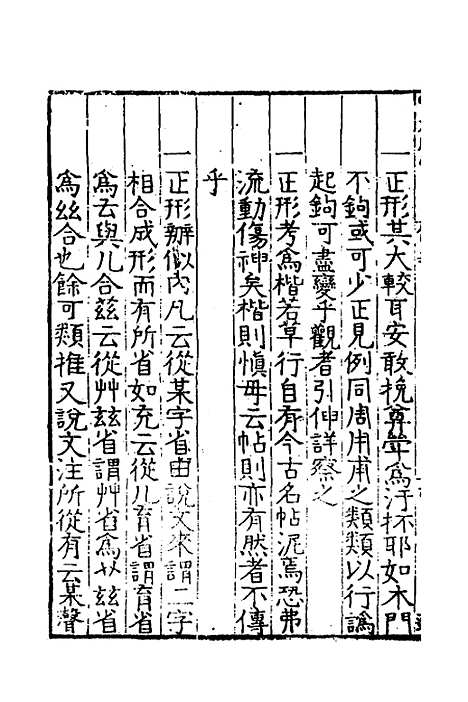 一正形其大較耳安敢挽尊罍爲汙抔耶如木門
不鉤或可少正見例同周用甫之類類以行譌
起鉤可盡變乎觀者引伸詳察之
一正形考爲楷若草行自有今古名帖泥焉恐弗
流動傷神矣楷則愼毋云帖則亦有然者不傳
乎
一正形辦似内凡云從某字省由說文來謂二字
相合成形而有所省如充云從儿育省謂育省
爲𠫓與儿合茲云從艸玆省謂艸省爲䒑玆省
爲丝合也餘可類推又說文注所從有云某聲